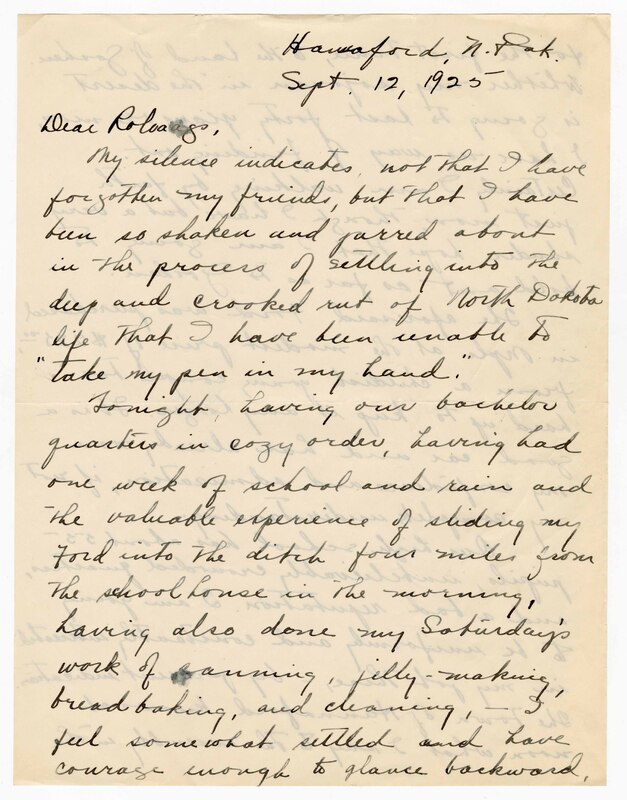 Hannaford, N. Dak.
Sept. 12, 1925
Dear Rolvaags,
My silence indicates, not that I have
forgotten my friends, but that I have
been so shaken and jarred about
in the process of settling into the
deep and crooked rut of North Dakota
life that I have been unable to
"take my pen in my hand."
Tonight, having our bachelor
quarters in cozy order, having had
one week of school and rain and
the valuable experience of sliding my
Ford into the ditch four miles from
the schoolhouse in the morning,
having also done my Saturday's
work of canning, jelly-making,
bread baking, and cleaning, — I
feel somewhat settled and have
courage enough to glance backward,